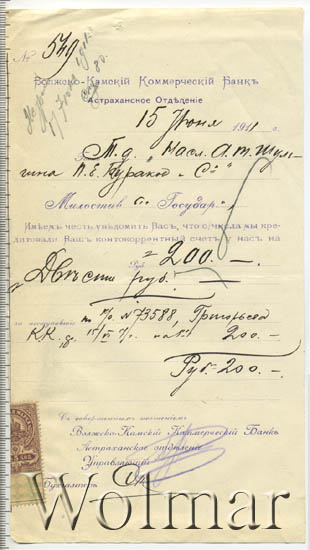 № 549
Волжско-Камскій Коммерческій Банкъ
Астраханское Отдѣленіе
15 Іюня 1911 г.
Т. Д. „Насл. А. т. Шуль-
гина П. Е. Бураков и Сія"
Милостив Государ
Имѣемъ честь увѣдомить Васъ, что с/числа мы кре-
дитовали Вашъ контокоррентный счетъ у насъ на
Руб. = 200. —
Двѣсти руб.
по п/о №73588, Григорьева
КК. 15/VI 200. —
Руб. 200. —
Съ совершеннымъ почтеніемъ
Волжско-Камскій Коммерческій Банкъ
Астраханское отдѣленіе
Управляющій
Бухгалтеръ
Wolmar